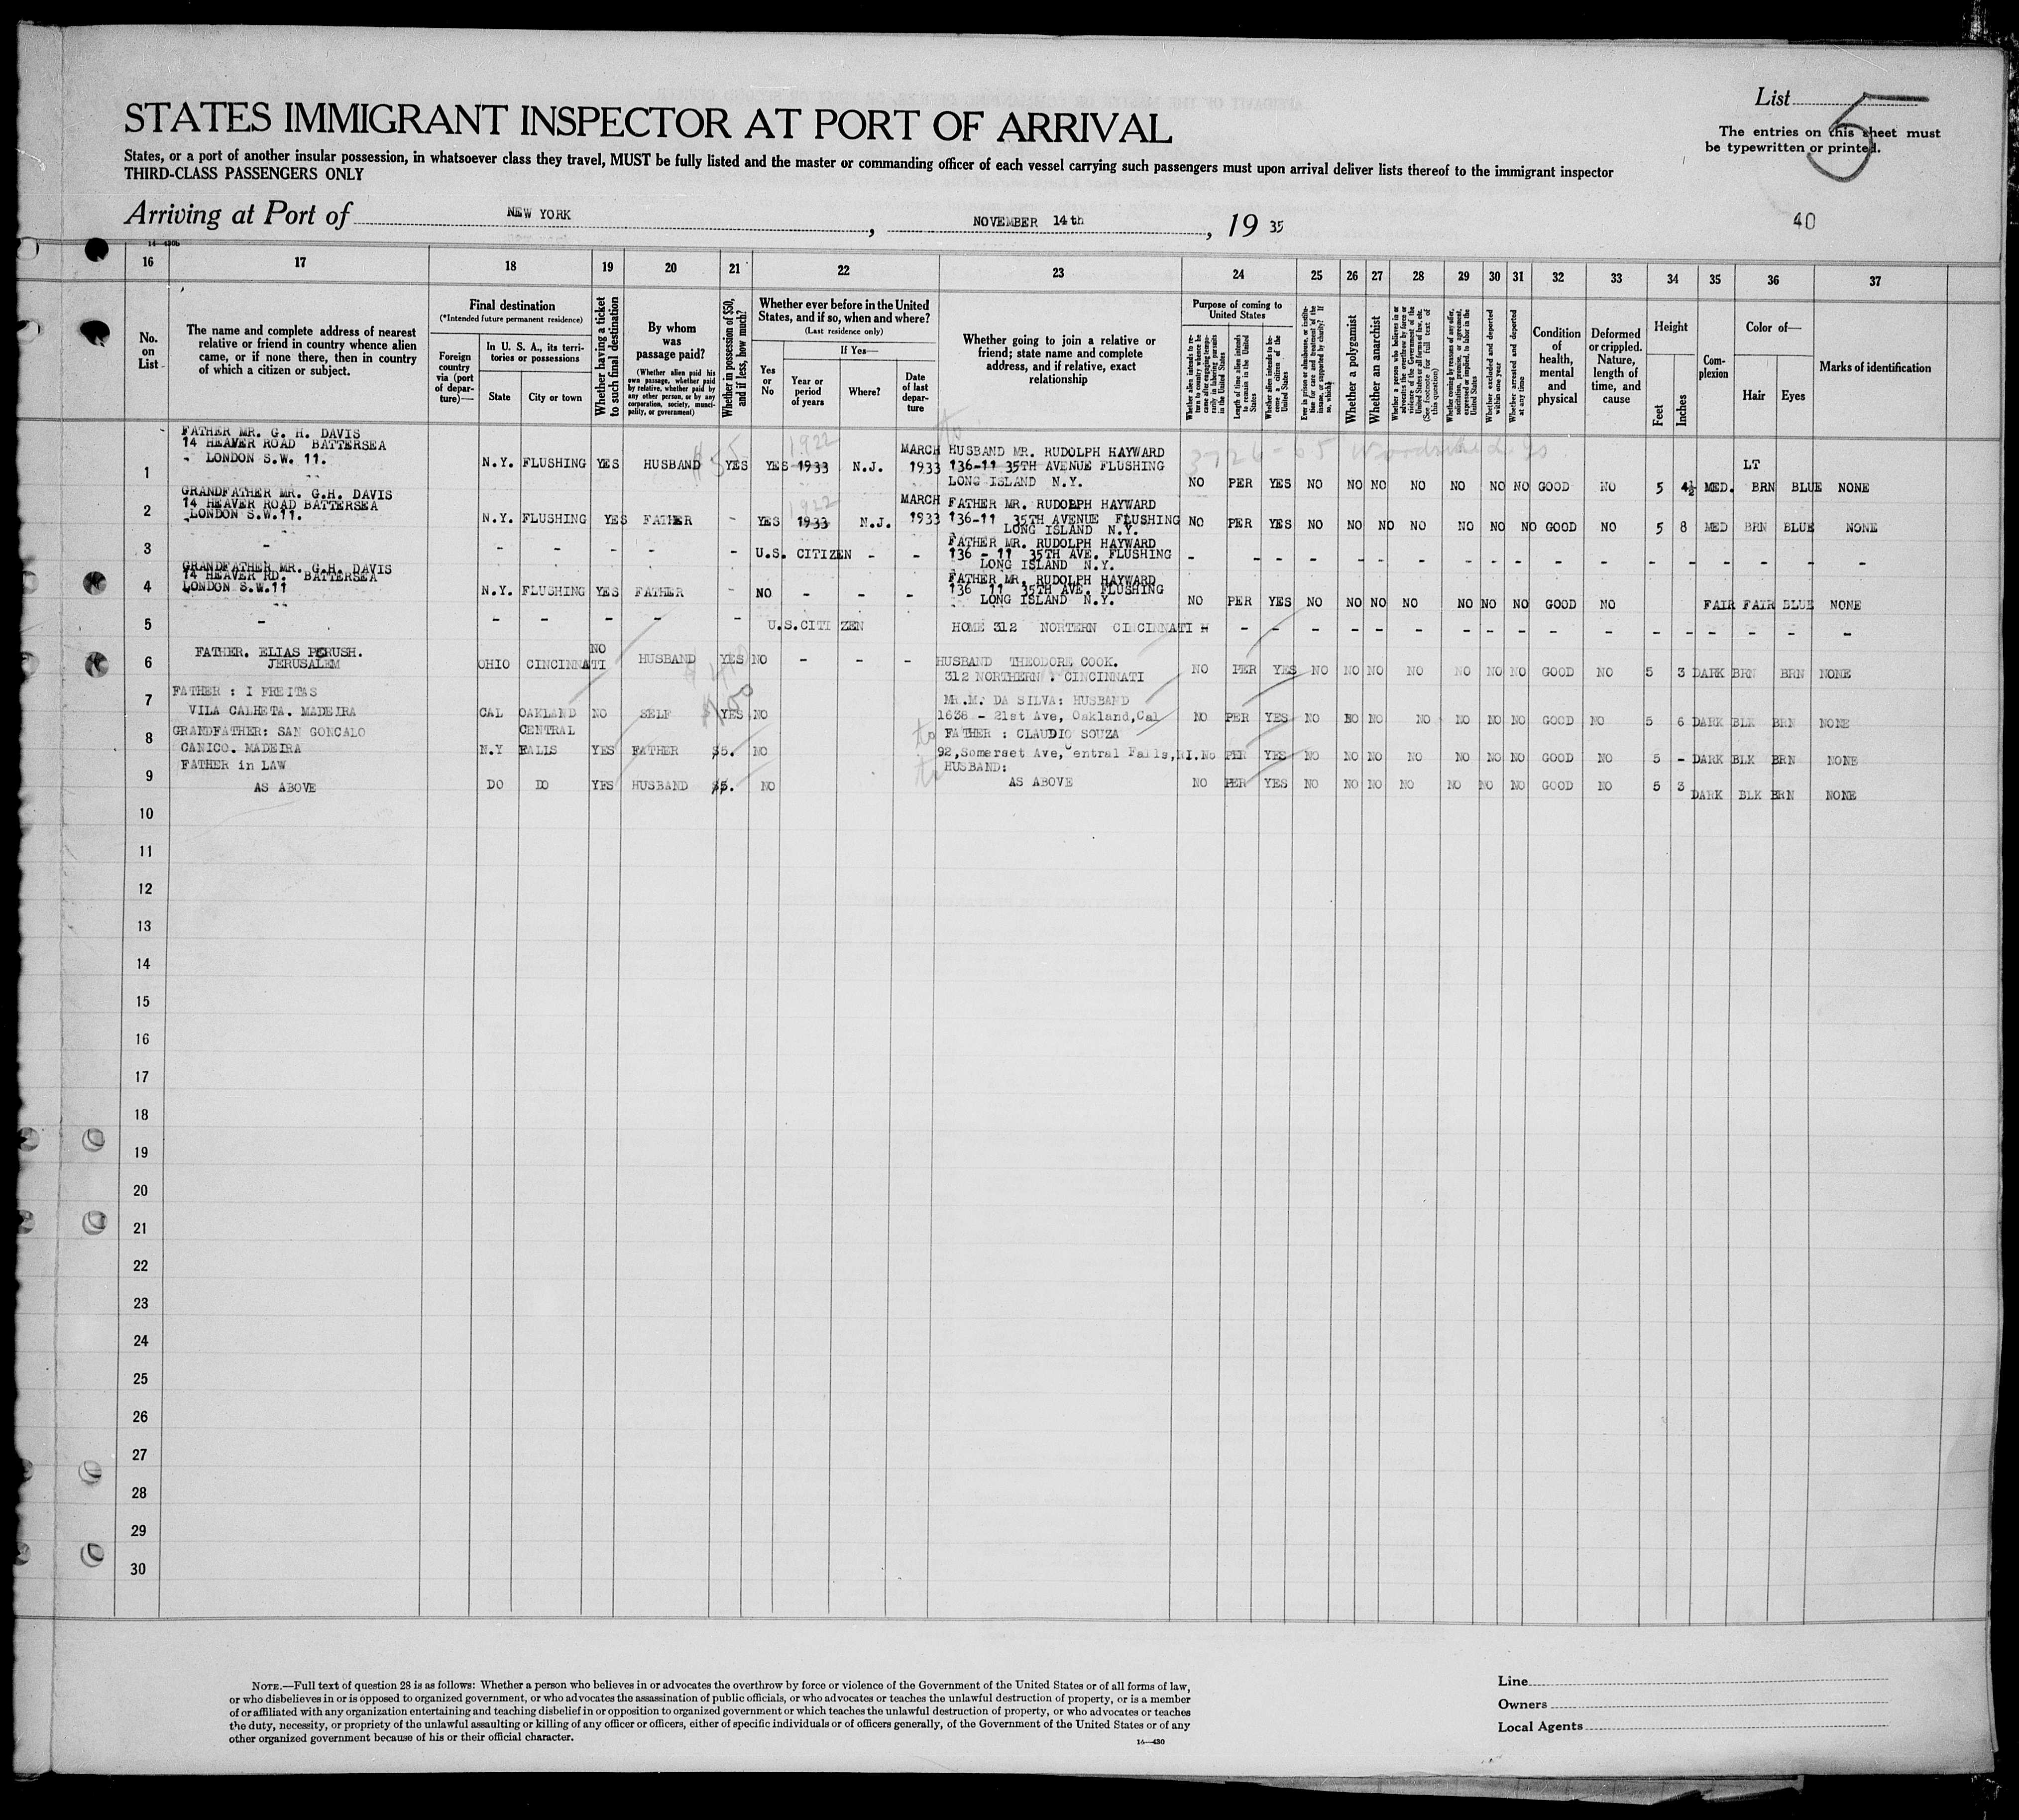 List 5
STATES IMMIGRANT INSPECTOR AT PORT OF ARRIVAL
The entries on this sheet must
be typewritten or printed.
States, or a port of another insular possession, in whatsoever class they travel, MUST be fully listed and the master or commanding officer of each vessel carrying such passengers must upon arrival deliver lists thereof to the immigrant inspector
THIRD-CLASS PASSENGERS ONLY
Arriving at Port of NEW YORK, NOVEMBER 14th, 19 35
40
14—430b
16 17 18 19 20 21 22 23 24 25 26 27 28 29 30 31 32 33 34 35 36 37
No. on List
The name and complete address of nearest
relative or friend in country whence alien
came, or if none there, then in country
of which a citizen or subject.
Final destination
(*Intended future permanent residence)
Foreign country via (port of departure)—
In U. S. A., its territories or possessions
State
City or town
Whether having a ticket to such final destination
By whom was passage paid?
(Whether alien paid his own passage, whether paid by relative, whether paid by any other person, or by any corporation, society, municipality, or government)
Whether in possession of $50, and if less, how much?
Whether ever before in the United States, and if so, when and where?
(Last residence only)
Yes or No
If Yes—
Year or period of years
Where?
Date of last departure
Whether going to join a relative or
friend; state name and complete
address, and if relative, exact
relationship
Purpose of coming to United States
Whether alien intends to return to country whence he came after engaging temporarily in laboring pursuits in the United States
Length of time alien intends to remain in the United States
Whether alien intends to become a citizen of the United States
Ever in prison or almshouse, or institution for care and treatment of the insane, or supported by charity? If so, which?
Whether a polygamist
Whether an anarchist
Whether a person who believes in or advocates the overthrow by force or violence of the Government of the United States or all forms of law, etc. (See footnote for full text of this question)
Whether coming by reasons of any offer, solicitation, promise, or agreement, expressed or implied, to labor in the United States
Whether excluded and deported within one year
Whether arrested and deported at any time
Condition of health, mental and physical
Deformed or crippled. Nature, length of time, and cause
Height
Feet
Inches
Complexion
Color of—
Hair
Eyes
Marks of identification
1 FATHER MR. G. H. DAVIS
14 HEAVER ROAD BATTERSEA
LONDON S.W. 11. N.Y. FLUSHING YES HUSBAND $55 YES YES 1922 1933 N.J. MARCH 1933 HUSBAND MR. RUDOLPH HAYWARD
136-11 35TH AVENUE FLUSHING
LONG ISLAND N.Y. 3726-65 NO PER YES NO NO NO NO NO NO NO GOOD NO 5 4½ MED. LT BRN BLUE NONE
2 GRANDFATHER MR. G.H. DAVIS
14 HEAVER ROAD BATTERSEA
LONDON S.W.11. N.Y. FLUSHING YES FATHER - YES 1922 1933 N.J. MARCH 1933 FATHER MR. RUDOLPH HAYWARD
136-11 35TH AVENUE FLUSHING
LONG ISLAND N.Y. NO PER YES NO NO NO NO NO NO NO GOOD NO 5 8 MED BRN BLUE NONE
3 - - - - - - U.S. CITIZEN - - FATHER MR. RUDOLPH HAYWARD
136 - 11 35TH AVE. FLUSHING
LONG ISLAND N.Y. - - - - - - - - - - - - - - - - - -
4 GRANDFATHER MR. G.H. DAVIS
14 HEAVER RD. BATTERSEA
LONDON S.W.11 N.Y. FLUSHING YES FATHER - NO - - - FATHER MR. RUDOLPH HAYWARD
136 11 35TH AVE. FLUSHING
LONG ISLAND N.Y. NO PER YES NO NO NO NO NO NO NO GOOD NO FAIR FAIR BLUE NONE
5 - - - - - - U.S.CITIZEN HOME 312 NORTERN CINCINNATI - - - - - - - - - - - - - - - - - -
6 FATHER. ELIAS PERUSH.
JERUSALEM OHIO CINCINNATI NO HUSBAND YES NO - - - HUSBAND THEODORE COOK.
312 NORTHERN . CINCINNATI NO PER YES NO NO NO NO NO NO NO GOOD NO 5 3 DARK BRN BRN NONE
7 FATHER : I FREITAS
VILA CALHETA. MADEIRA CAL OAKLAND NO SELF $100 YES NO MR.M. DA SILVA: HUSBAND
1638 - 21st Ave, Oakland,Cal NO PER YES NO NO NO NO NO NO NO GOOD NO 5 6 DARK BLK BRN NONE
8 GRANDFATHER: SAN GONCALO
CANICO. MADEIRA N.Y CENTRAL FALLS YES FATHER $5. NO to FATHER : CLAUDIO SOUZA
92,Somerset Ave,Central Falls,RI. No PER YES NO NO NO NO NO NO NO GOOD NO 5 - DARK BLK BRN NONE
9 FATHER in LAW
AS ABOVE DO DO YES HUSBAND $5. NO to HUSBAND:
AS ABOVE NO PER YES NO NO NO NO NO NO NO GOOD NO 5 3 DARK BLK BRN NONE
10
11
12
13
14
15
16
17
18
19
20
21
22
23
24
25
26
27
28
29
30
NOTE.—Full text of question 28 is as follows: Whether a person who believes in or advocates the overthrow by force or violence of the Government of the United States or of all forms of law,
or who disbelieves in or is opposed to organized government, or who advocates the assassination of public officials, or who advocates or teaches the unlawful destruction of property, or is a member
of or affiliated with any organization entertaining and teaching disbelief in or opposition to organized government or which teaches the unlawful destruction of property, or who advocates or teaches
the duty, necessity, or propriety of the unlawful assaulting or killing of any officer or officers, either of specific individuals or of officers generally, of the Government of the United States or of any
other organized government because of his or their official character.
14—430
Line
Owners
Local Agents